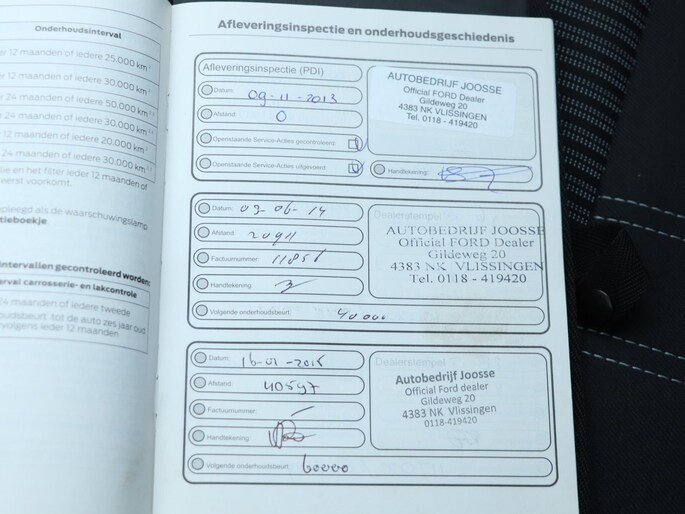 Onderhoudsinterval
r 12 maanden of iedere 25.000 km
r 12 maanden of iedere 30.000 km
r 24 maanden of iedere 50.000 km
r 24 maanden of iedere 30.000 km
r 12 maanden of iedere 20.000 km
r 24 maanden of iedere 30.000 km
lie en het filter ieder 12 maanden of
eerst voorkomt.
pleegd als de waarschuwingslamp
tieboekje
intervallen gecontroleerd worden:
rval carrosserie- en lakcontrole
24 maanden of iedere tweede
oudsbeurt tot de auto zes jaar oud
vervolgens ieder 12 maanden
Afleveringsinspectie en onderhoudsgeschiedenis
Afleveringsinspectie (PDI)
Datum: 09-11-2013
Afstand: 0
Openstaande Service-Acties gecontroleerd:
Openstaande Service-Acties uitgevoerd:
AUTOBEDRIJF JOOSSE
Official FORD Dealer
Gildeweg 20
4383 NK VLISSINGEN
Tel. 0118 - 419420
Handtekening:
Datum: 03-06-14
Afstand: 20911
Factuurnummer: 11856
Handtekening:
Volgende onderhoudsbeurt: 40000
Dealerstempel
AUTOBEDRIJF JOOSSE
Official FORD Dealer
Gildeweg 20
4383 NK VLISSINGEN
Tel. 0118 - 419420
Datum:
Afstand: 40597
Factuurnummer: -
Handtekening:
Volgende onderhoudsbeurt: 60000
Dealerstempel
Autobedrijf Joosse
Official Ford dealer
Gildeweg 20
4383 NK Vlissingen
0118-419420